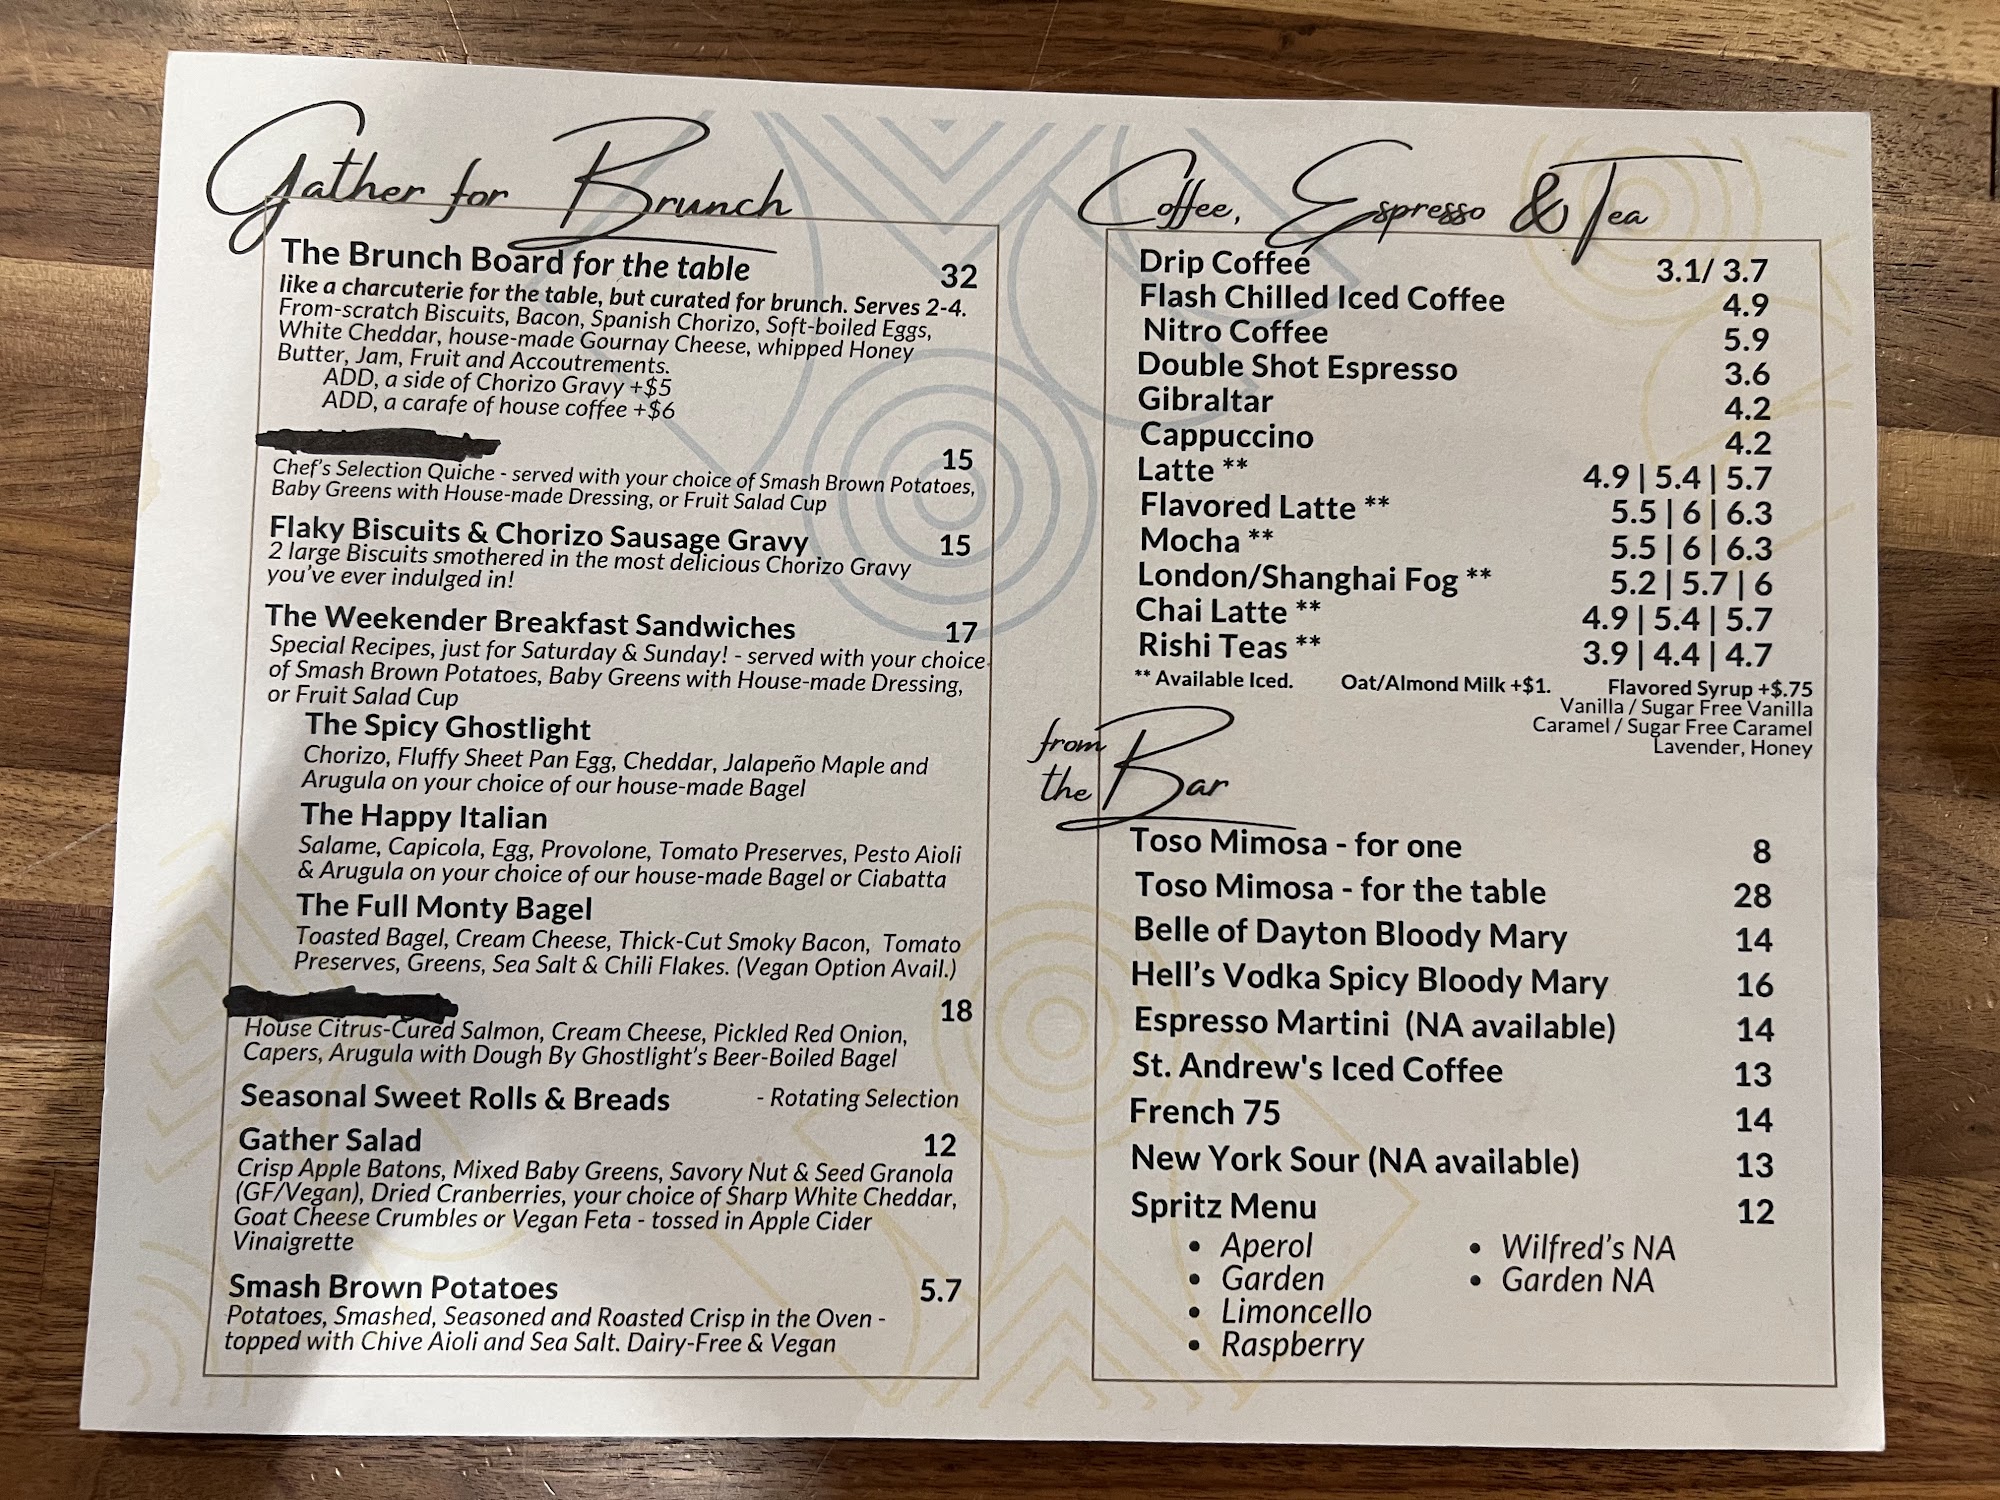 Gather for Brunch
The Brunch Board for the table 32
like a charcuterie for the table, but curated for brunch. Serves 2-4.
From-scratch Biscuits, Bacon, Spanish Chorizo, Soft-boiled Eggs,
White Cheddar, house-made Gournay Cheese, whipped Honey
Butter, Jam, Fruit and Accoutrements.
ADD, a side of Chorizo Gravy +$5
ADD, a carafe of house coffee +$6
15
Chef's Selection Quiche - served with your choice of Smash Brown Potatoes,
Baby Greens with House-made Dressing, or Fruit Salad Cup
Flaky Biscuits & Chorizo Sausage Gravy 15
2 large Biscuits smothered in the most delicious Chorizo Gravy
you've ever indulged in!
The Weekender Breakfast Sandwiches 17
Special Recipes, just for Saturday & Sunday! - served with your choice
of Smash Brown Potatoes, Baby Greens with House-made Dressing,
or Fruit Salad Cup
The Spicy Ghostlight
Chorizo, Fluffy Sheet Pan Egg, Cheddar, Jalapeño Maple and
Arugula on your choice of our house-made Bagel
The Happy Italian
Salame, Capicola, Egg, Provolone, Tomato Preserves, Pesto Aioli
& Arugula on your choice of our house-made Bagel or Ciabatta
The Full Monty Bagel
Toasted Bagel, Cream Cheese, Thick-Cut Smoky Bacon, Tomato
Preserves, Greens, Sea Salt & Chili Flakes. (Vegan Option Avail.)
18
House Citrus-Cured Salmon, Cream Cheese, Pickled Red Onion,
Capers, Arugula with Dough By Ghostlight's Beer-Boiled Bagel
Seasonal Sweet Rolls & Breads - Rotating Selection
Gather Salad 12
Crisp Apple Batons, Mixed Baby Greens, Savory Nut & Seed Granola
(GF/Vegan), Dried Cranberries, your choice of Sharp White Cheddar,
Goat Cheese Crumbles or Vegan Feta - tossed in Apple Cider
Vinaigrette
Smash Brown Potatoes 5.7
Potatoes, Smashed, Seasoned and Roasted Crisp in the Oven -
topped with Chive Aioli and Sea Salt. Dairy-Free & Vegan
Coffee, Espresso & Tea
Drip Coffee 3.1/ 3.7
Flash Chilled Iced Coffee 4.9
Nitro Coffee 5.9
Double Shot Espresso 3.6
Gibraltar 4.2
Cappuccino 4.2
Latte ** 4.9 | 5.4 | 5.7
Flavored Latte ** 5.5 | 6 | 6.3
Mocha ** 5.5 | 6 | 6.3
London/Shanghai Fog ** 5.2 | 5.7 | 6
Chai Latte ** 4.9 | 5.4 | 5.7
Rishi Teas ** 3.9 | 4.4 | 4.7
** Available Iced. Oat/Almond Milk +$1. Flavored Syrup +$.75
Vanilla / Sugar Free Vanilla
Caramel / Sugar Free Caramel
Lavender, Honey
from
the Bar
Toso Mimosa - for one 8
Toso Mimosa - for the table 28
Belle of Dayton Bloody Mary 14
Hell's Vodka Spicy Bloody Mary 16
Espresso Martini (NA available) 14
St. Andrew's Iced Coffee 13
French 75 14
New York Sour (NA available) 13
Spritz Menu 12
• Aperol
• Garden
• Limoncello
• Raspberry
• Wilfred's NA
• Garden NA